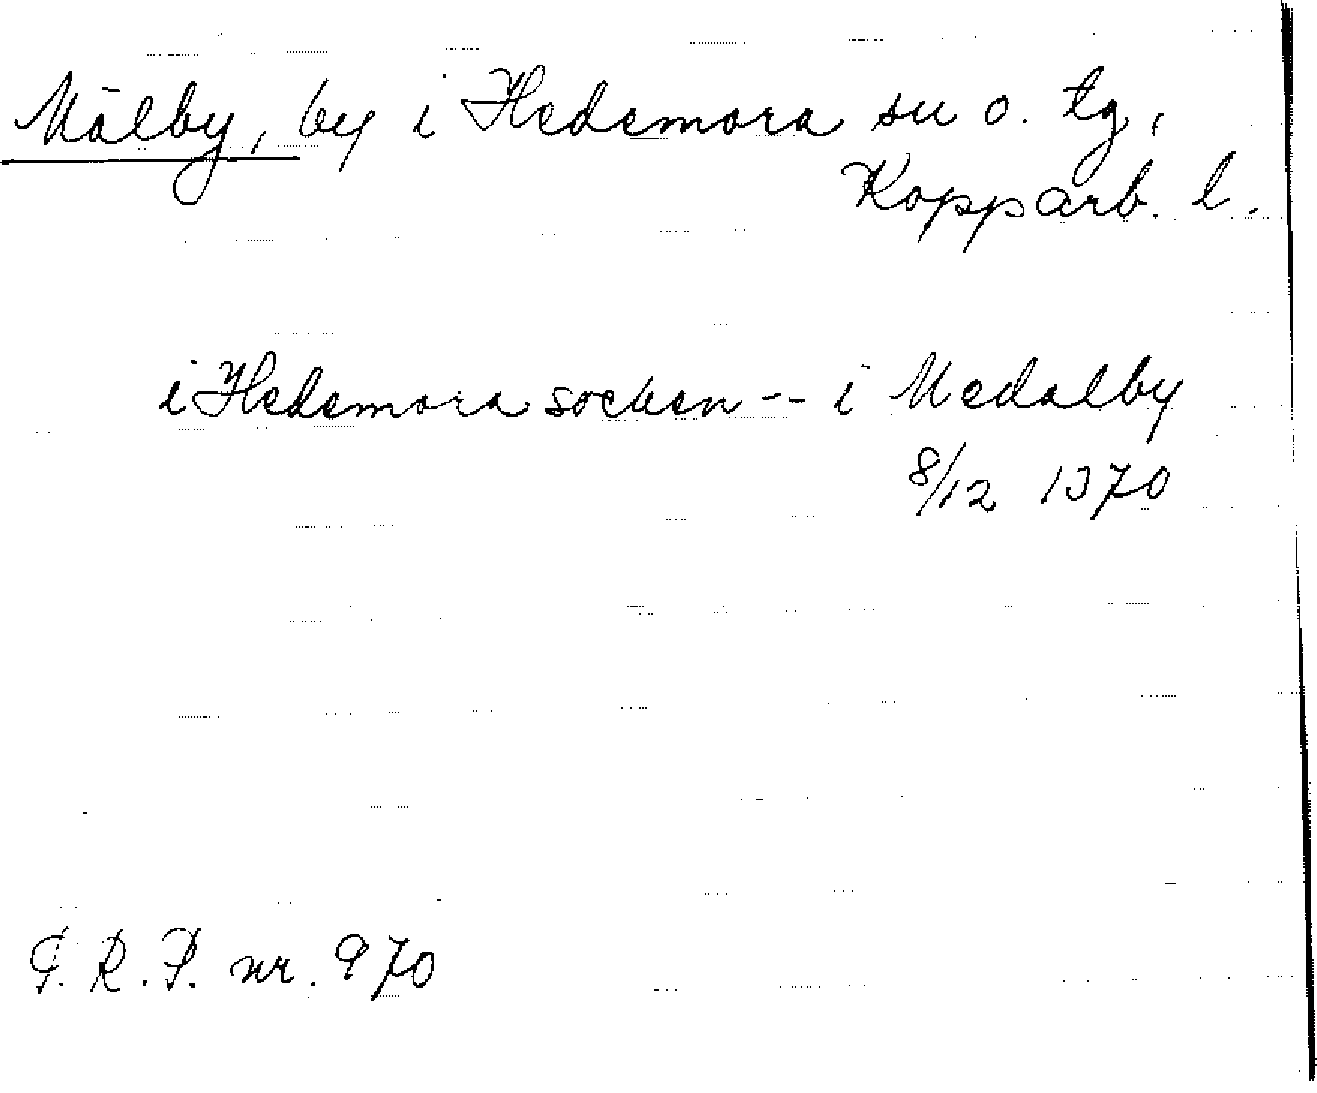 Mälby, by i Hedemora sn o. tg,
Kopparb. l.
i Hedemora socken -- i Medalby
8/12 1370
S. R. P. nr. 970